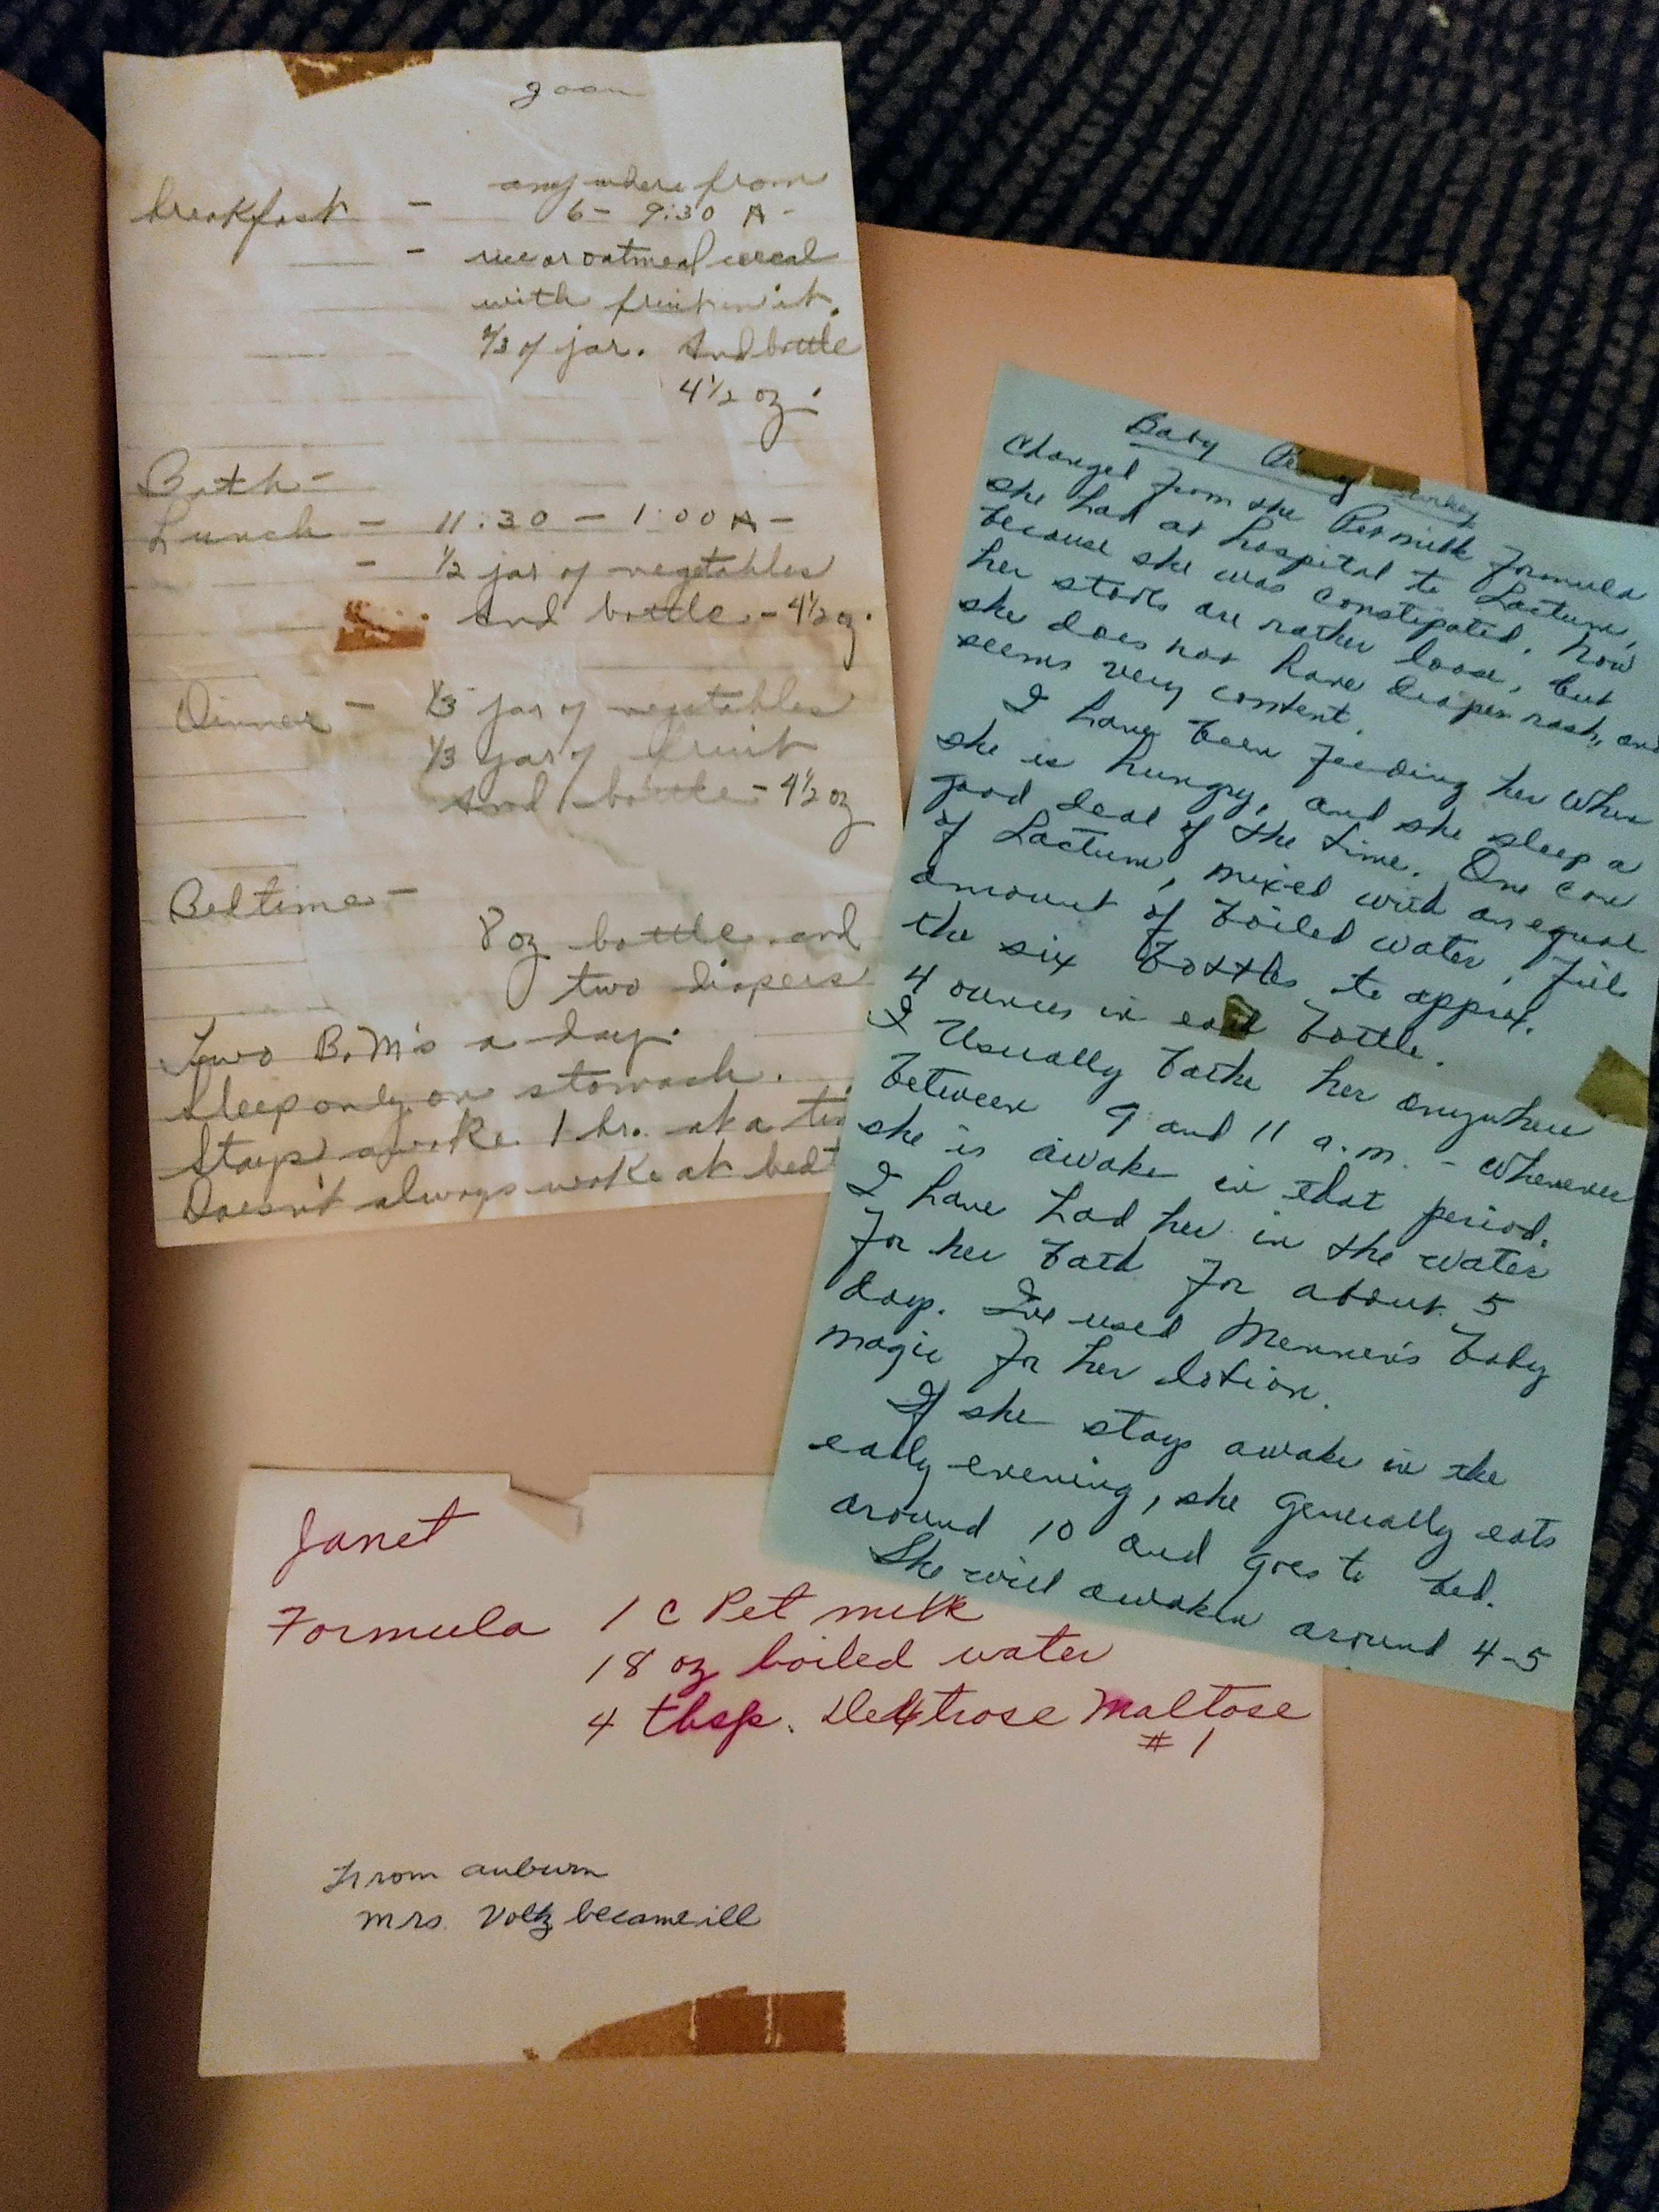 Joan
breakfast - anywhere from
6 - 9:30 A -
- rice or oatmeal cereal
with fruit in it.
1/3 of jar. And bottle
4 1/2 oz.
Bath -
Lunch - 11:30 - 1:00 A -
- 1/2 jar of vegetables
and bottle - 4 1/2 oz.
Dinner - 1/3 jar of vegetables
1/3 jar of fruit
and bottle - 4 1/2 oz
Bedtime -
8 oz bottle and
two diapers
Two B.M's a day.
Sleep only on stomach.
Stays awake 1 hr. at a
Doesn't always wake at
Baby
Changed from the Petmilk formula
she had at hospital to Lactum,
because she was constipated. Now
her stools are rather loose, but
she does not have diaper rash, and
seems very content.
I have been feeding her when
she is hungry, and she sleep a
good deal of the time. One can
of Lactum, mixed with an equal
amount of boiled water, fill
the six bottles to approx.
4 ounces in each bottle.
I Usually bathe her anywhere
between 9 and 11 a.m. - whenever
she is awake in that period.
I have had her in the water
for her bath for about 5
days. I've used Mennen's baby
magic for her lotion.
If she stays awake in the
early evening, she generally eats
around 10 and goes to bed.
She will awaken around 4-5
Janet
Formula 1 C Pet milk
18 oz boiled water
4 tbsp. Dextrose Maltose
#1
From auburn
Mrs. Voltz became ill